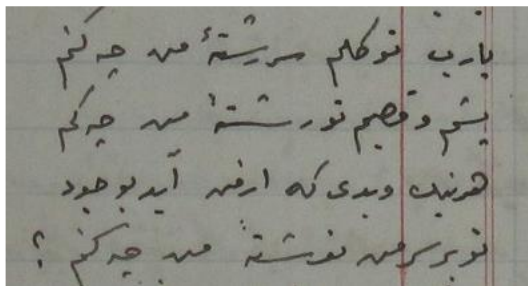 یارب تو گلم سرشتۀ من چه کنم
پشم و قصبم تو رشتۀ من چه کنم
هر نیک و بدی که از من آید بوجود
تو بر سر من نوشتۀ من چه کنم ؟